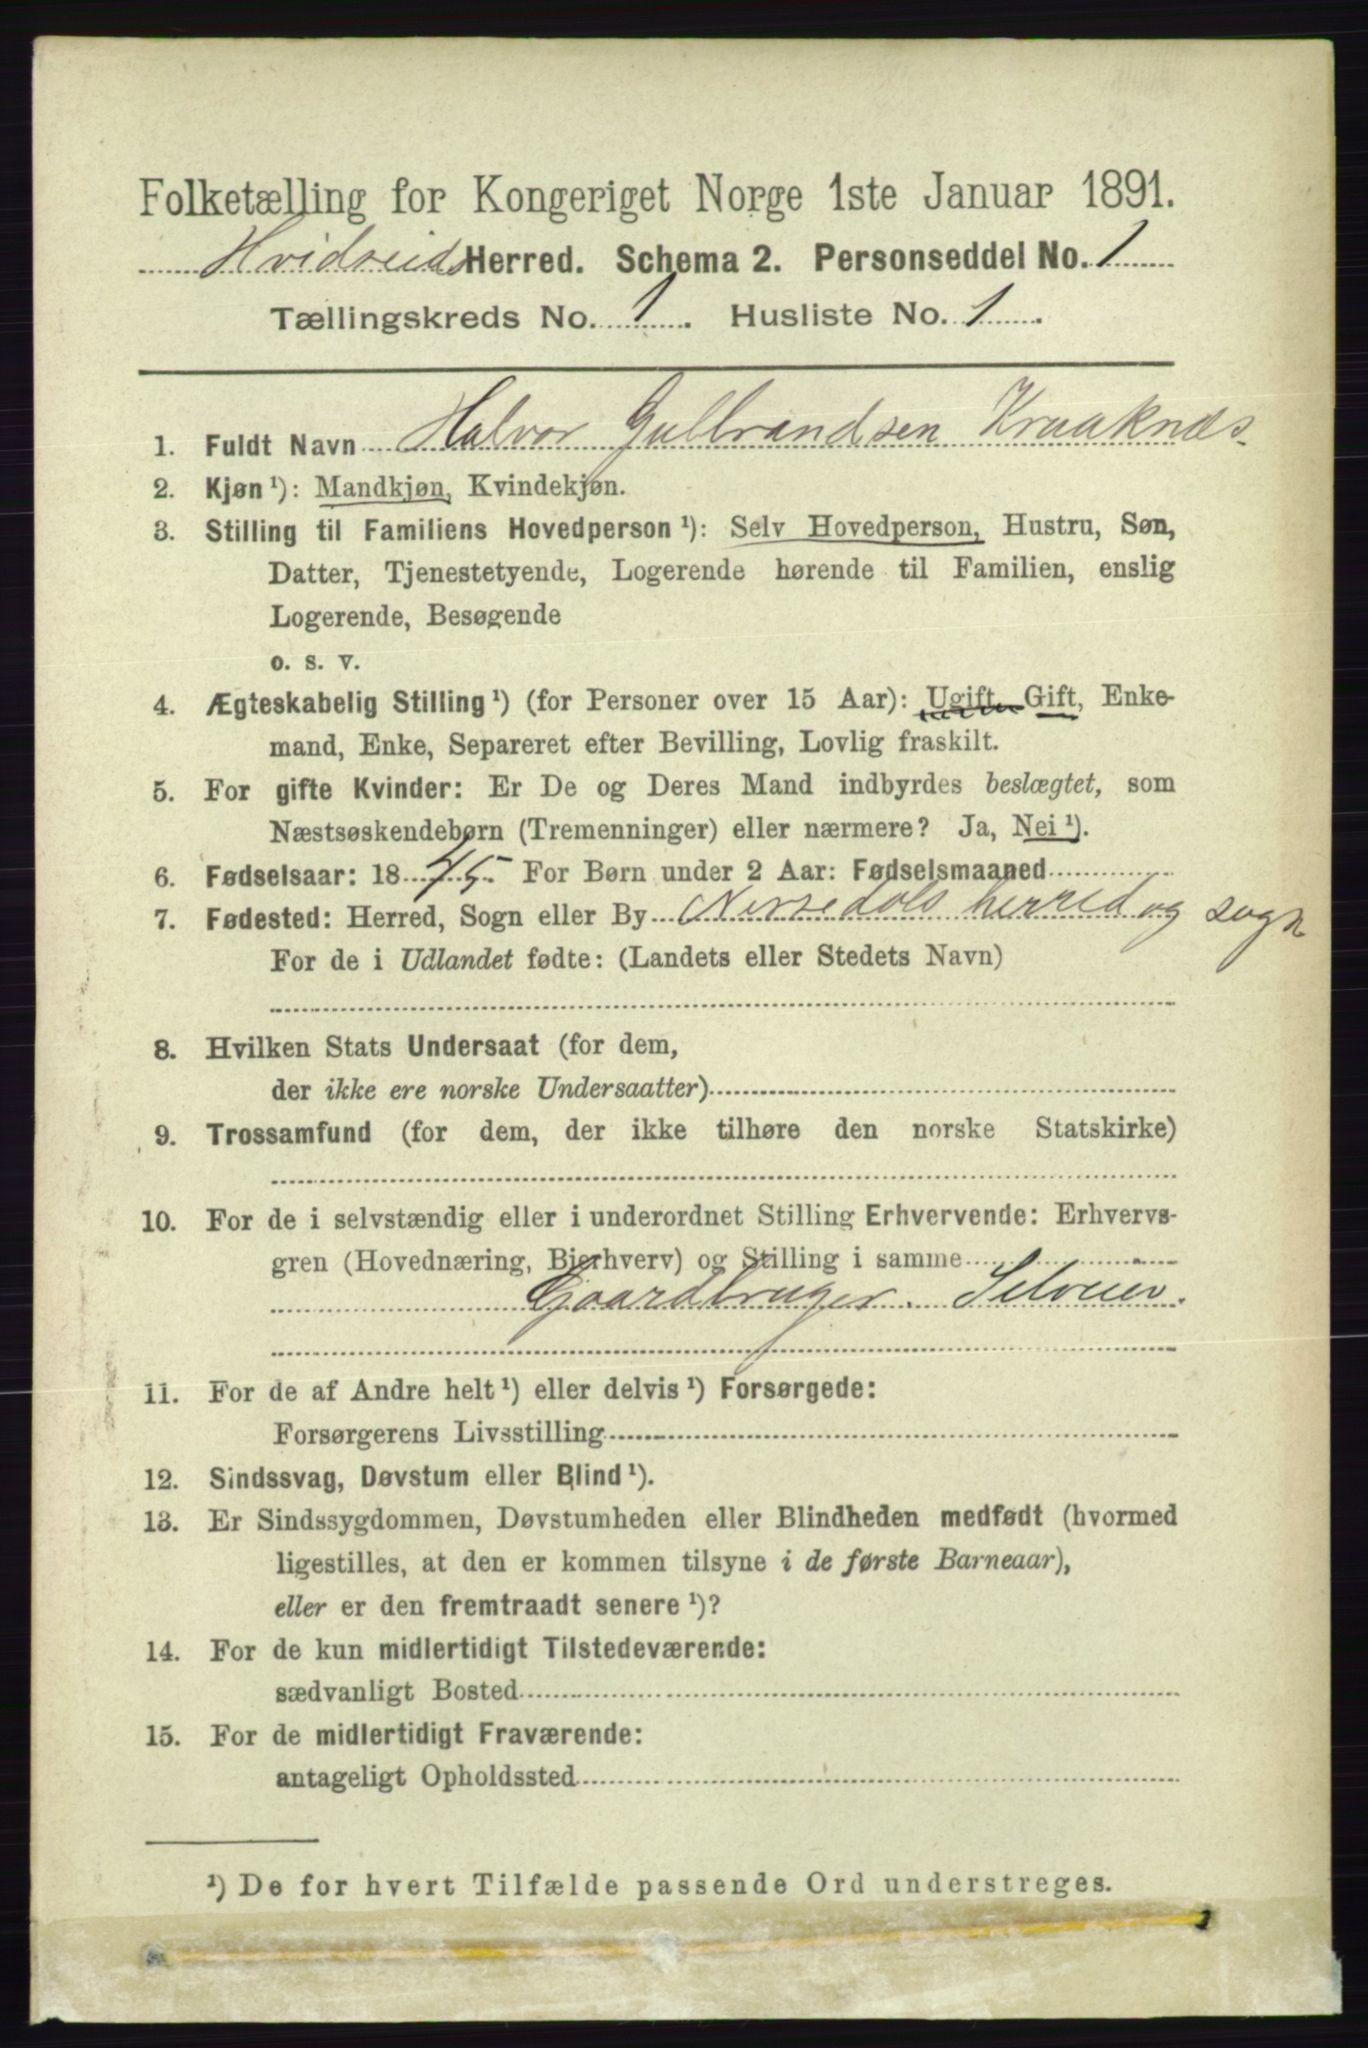 Folketælling for Kongeriget Norge 1ste Januar 1891.
Hvidseids Herred. Schema 2. Personseddel No. 1
Tællingskreds No. 1. Husliste No. 1.
1. Fuldt Navn Halvor Gulbrandsen Kraaknes.
2. Kjøn ¹): Mandkjøn, Kvindekjøn.
3. Stilling til Familiens Hovedperson ¹): Selv Hovedperson, Hustru, Søn,
Datter, Tjenestetyende, Logerende hørende til Familien, enslig
Logerende, Besøgende
o. s. v.
4. Ægteskabelig Stilling ¹) (for Personer over 15 Aar): Ugift, Gift, Enke-
mand, Enke, Separeret efter Bevilling, Lovlig fraskilt.
5. For gifte Kvinder: Er De og Deres Mand indbyrdes beslægtet, som
Næstsøskendebørn (Tremenninger) eller nærmere? Ja, Nei ¹).
6. Fødselsaar: 1845. For Børn under 2 Aar: Fødselsmaaned
7. Fødested: Herred, Sogn eller By Nissedals herred og sogn
For de i Udlandet fødte: (Landets eller Stedets Navn)
8. Hvilken Stats Undersaat (for dem,
der ikke ere norske Undersaatter)
9. Trossamfund (for dem, der ikke tilhøre den norske Statskirke)
10. For de i selvstændig eller i underordnet Stilling Erhvervende: Erhvervs-
gren (Hovednæring, Bierhverv) og Stilling i samme
Gaardbruger. Selveier.
11. For de af Andre helt ¹) eller delvis ¹) Forsørgede:
Forsørgerens Livsstilling
12. Sindssvag, Døvstum eller Blind ¹).
13. Er Sindssygdommen, Døvstumheden eller Blindheden medfødt (hvormed
ligestilles, at den er kommen tilsyne i de første Barneaar),
eller er den fremtraadt senere ¹)?
14. For de kun midlertidigt Tilstedeværende:
sædvanligt Bosted
15. For de midlertidigt Fraværende:
antageligt Opholdssted
¹) De for hvert Tilfælde passende Ord understreges.